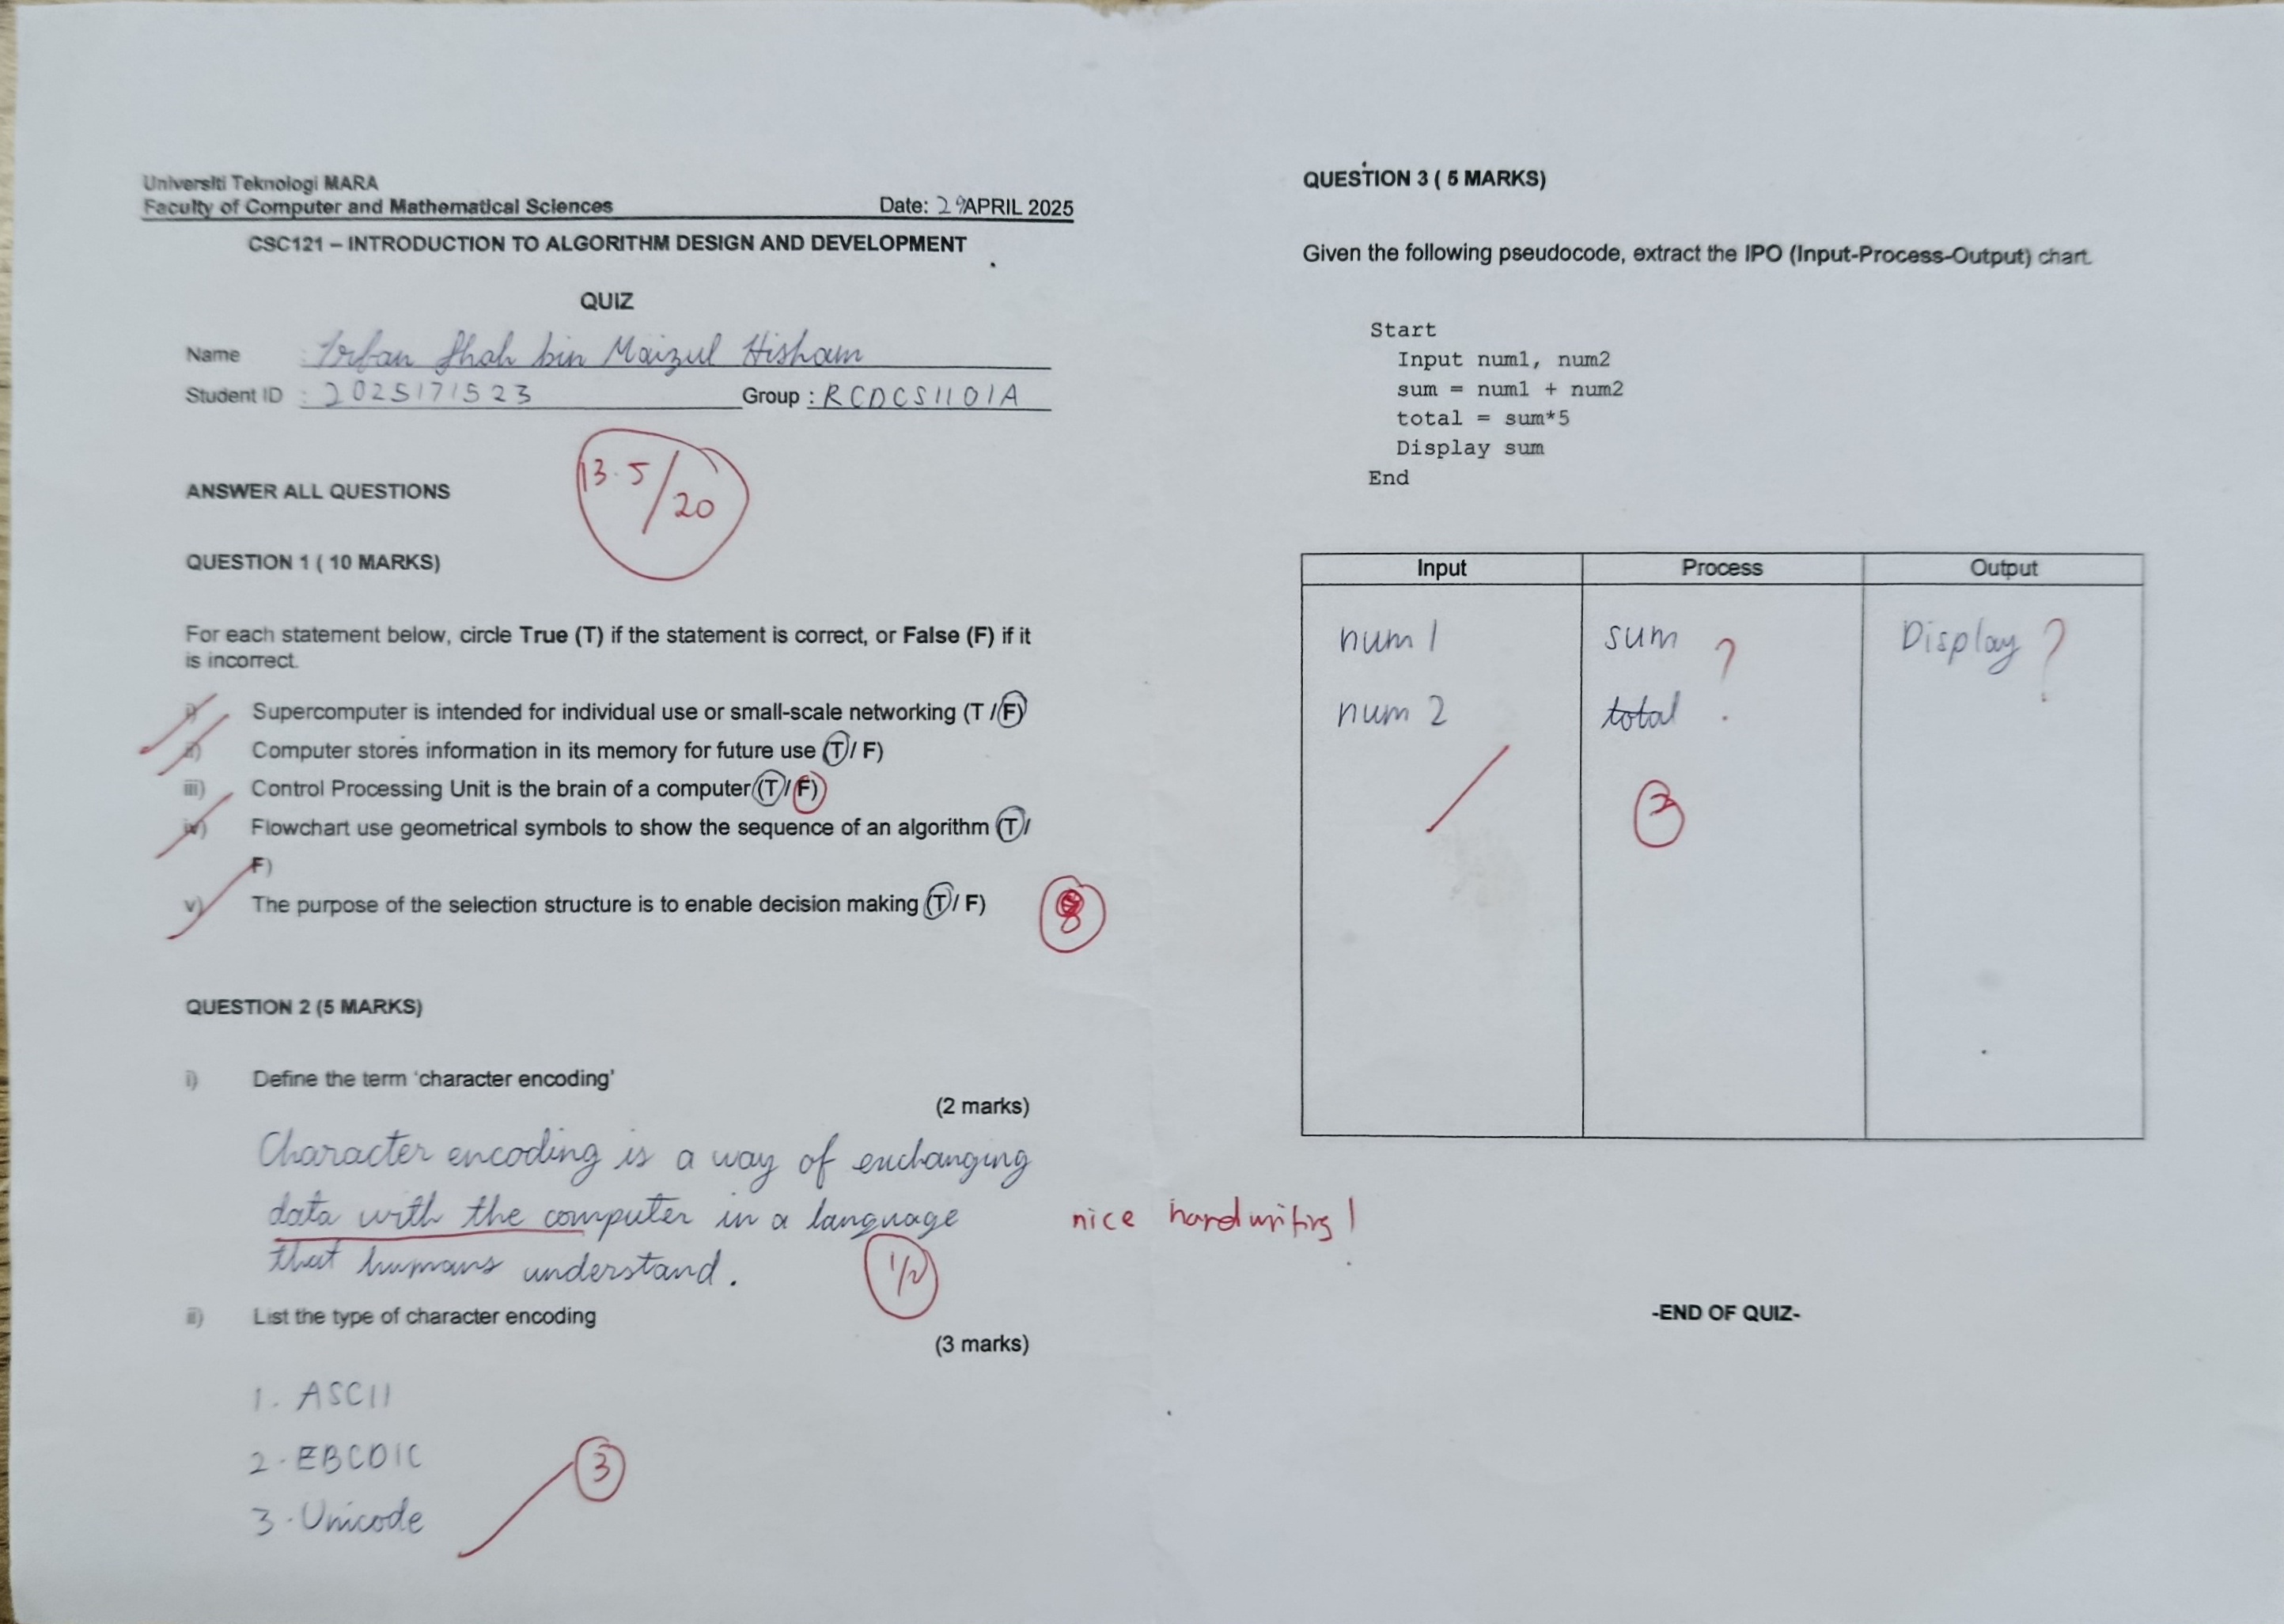 Universiti Teknologi MARA
Faculty of Computer and Mathematical Sciences Date: 29 APRIL 2025
CSC121 – INTRODUCTION TO ALGORITHM DESIGN AND DEVELOPMENT
QUIZ
Name : Irfan Shah bin Maizul Hisham
Student ID : 2025171523 Group : RCDCS1101A
13.5/20
ANSWER ALL QUESTIONS
QUESTION 1 ( 10 MARKS)
For each statement below, circle True (T) if the statement is correct, or False (F) if it
is incorrect.
i) Supercomputer is intended for individual use or small-scale networking (T / F)
ii) Computer stores information in its memory for future use (T / F)
iii) Control Processing Unit is the brain of a computer (T / F)
iv) Flowchart use geometrical symbols to show the sequence of an algorithm (T /
F)
v) The purpose of the selection structure is to enable decision making (T / F)
8
QUESTION 2 (5 MARKS)
i) Define the term 'character encoding'
(2 marks)
Character encoding is a way of exchanging
data with the computer in a language
that humans understand.
ii) List the type of character encoding
(3 marks)
1. ASCII
2. EBCDIC
3. Unicode
3
QUESTION 3 ( 5 MARKS)
Given the following pseudocode, extract the IPO (Input-Process-Output) chart.
Start
Input num1, num2
sum = num1 + num2
total = sum*5
Display sum
End
Input Process Output
num 1 sum ? Display ?
num 2 total
nice handwriting!
-END OF QUIZ-